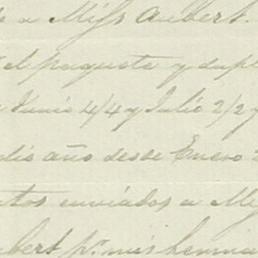 a Miss Aubert.
el paquete y dupl
Junio 4/4 y Julio 2/2 y
dió año desde Enero
tos enviados a M
bert pr. mis herma